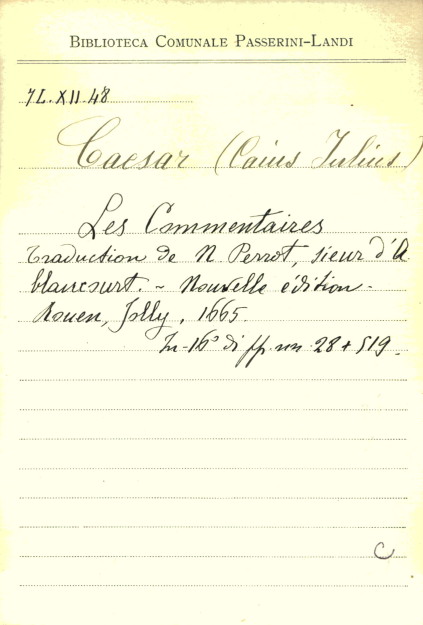 BIBLIOTECA COMUNALE PASSERINI-LANDI
7L.XII.48
Caesar (Caius Iulius)
Les Commentaires
Traduction de N. Perrot, sieur d'A
blancourt. - Nouvelle édition -
Rouen, Jolly, 1665.
In-16° di pp. nn. 28 + 519.
C